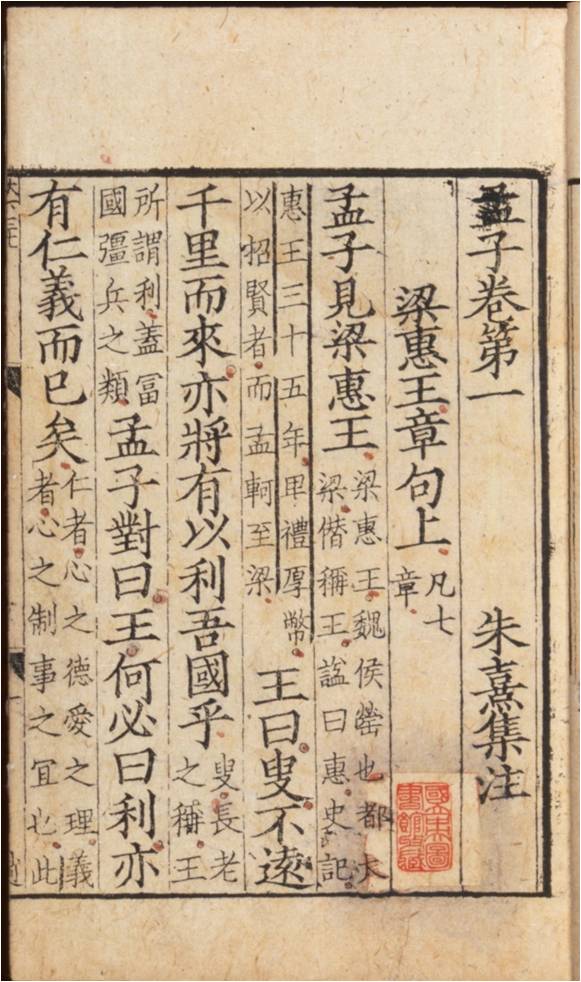 孟子卷第一 朱熹集注
梁惠王章句上 凡七章
孟子見梁惠王 梁惠王魏侯罃也都大梁僭稱王謚曰惠史記
惠王三十五年卑禮厚幣以招賢者而孟軻至梁 王曰叟不遠
千里而來亦將有以利吾國乎 叟長老之稱王
所謂利蓋冨國彊兵之類 孟子對曰王何必曰利亦
有仁義而已矣 仁者心之德愛之理義者心之制事之冝也此